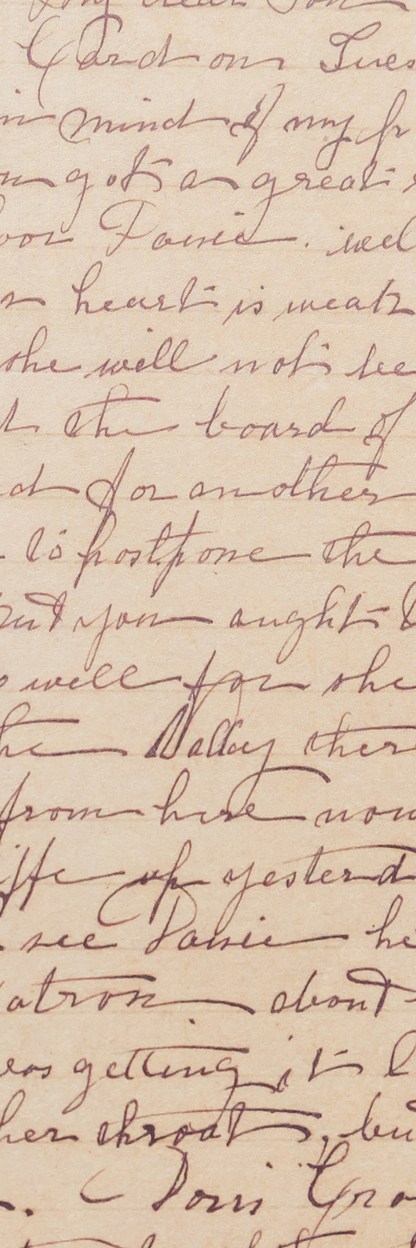 My dear Son
Card on Tues
in mind of my fr
you got a great
poor Fanie. wel
heart is weak
she will not be
the board of
for another
to postpone the
but you aught t
well for she
the Valley ther
from here now
iffe up yesterd
see Fanie he
atron about
was getting it b
her throat, bu
Doris Gra